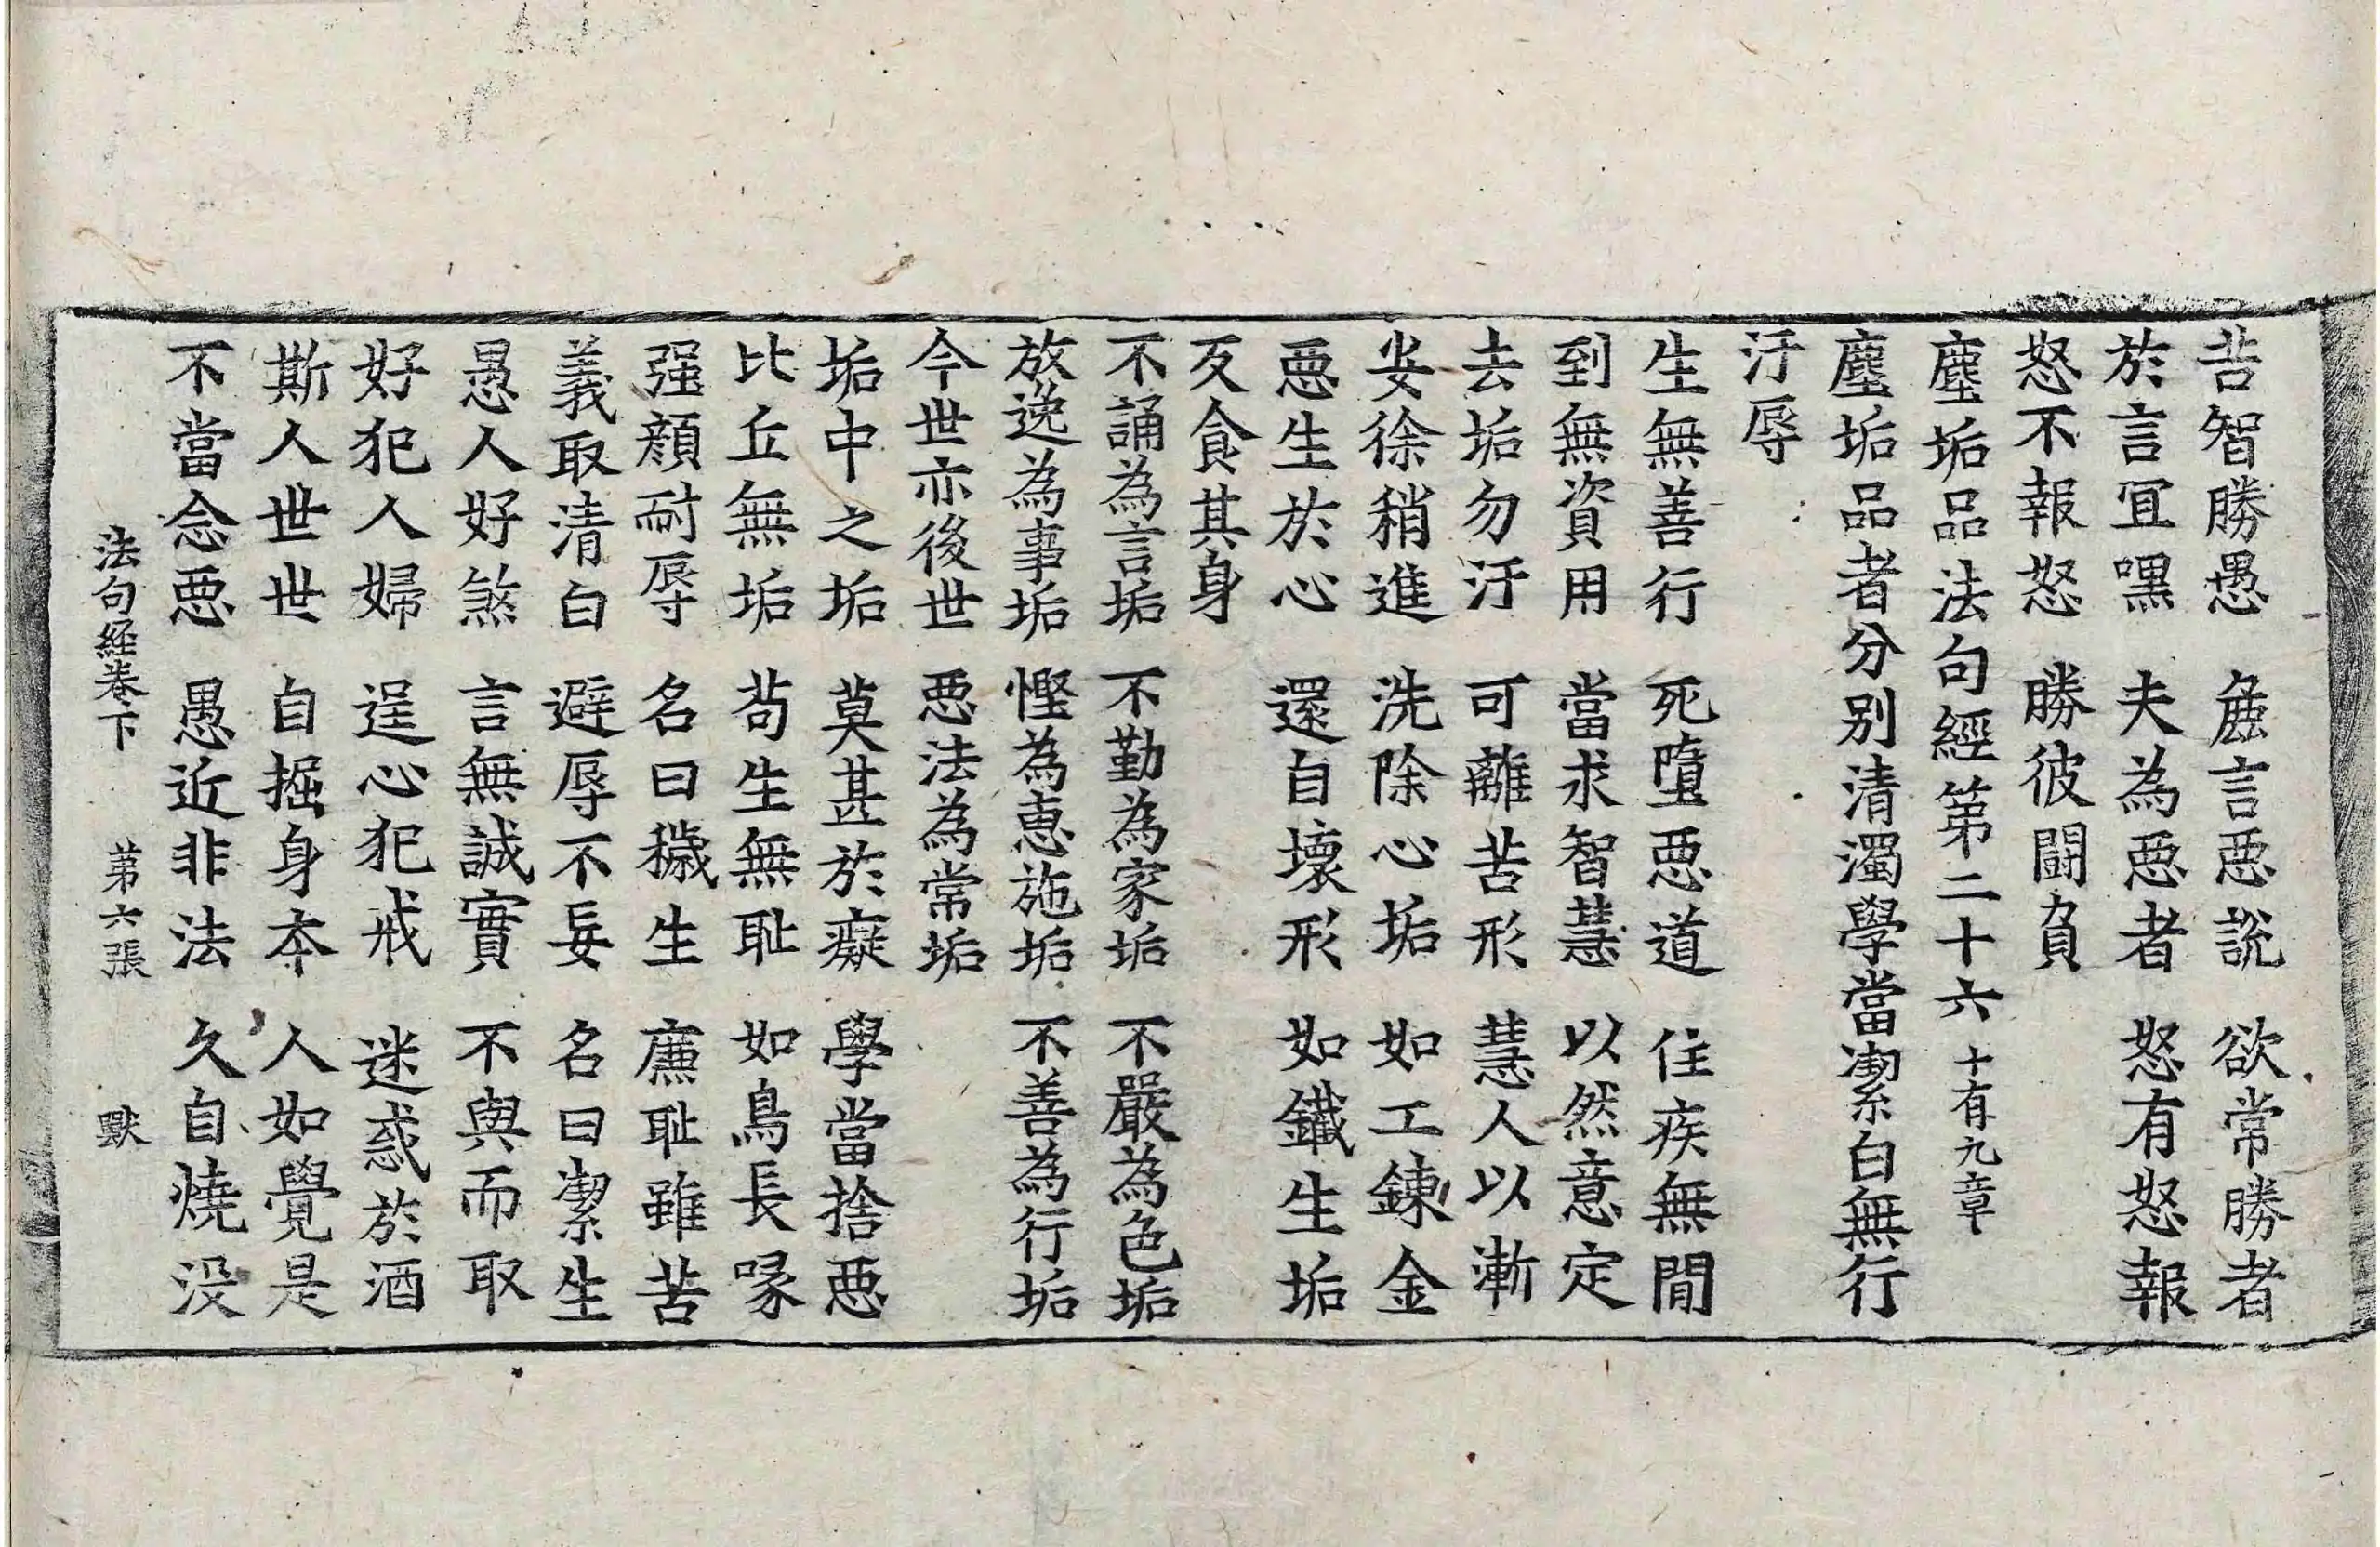 苦智勝愚 麁言惡說 欲常勝者
於言宜嘿 夫為惡者 怒有怒報
怒不報怒 勝彼鬪負
塵垢品法句經第二十六 十有九章
塵垢品者分別清濁學當潔白無行
汙辱
生無善行 死墮惡道 住疾無間
到無資用 當求智慧 以然意定
去垢勿汙 可離苦形 慧人以漸
安徐稍進 洗除心垢 如工鍊金
惡生於心 還自壞形 如鐵生垢
反食其身
不誦為言垢 不勤為家垢 不嚴為色垢
放逸為事垢 慳為惠施垢 不善為行垢
今世亦後世 惡法為常垢
垢中之垢 莫甚於癡 學當捨惡
比丘無垢 苟生無恥 如鳥長喙
强顏耐辱 名曰穢生 廉恥雖苦
義取清白 避辱不妄 名曰潔生
愚人好煞 言無誠實 不與而取
好犯人婦 逞心犯戒 迷惑於酒
斯人世世 自掘身本 人如覺是
不當念惡 愚近非法 久自燒没
法句経卷下 第六張 獸